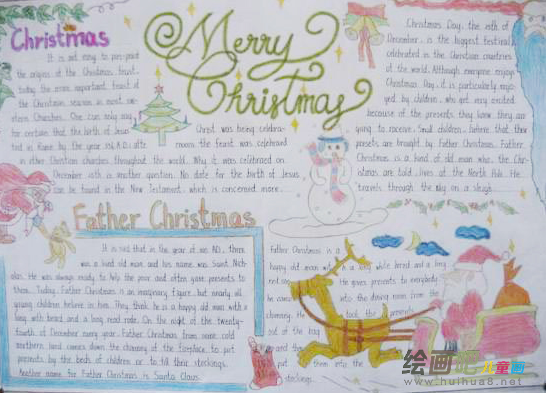 Christmas
Merry
Christmas
It is not easy to pin-point
the origins of the Christmas feast,
today the most important feast of
the Christmas season in most wes-
tern Churches. One can only say
for certain that the birth of Jesus
Christ was being celebra-
ted in Rome by the year 336 A.D. after
wards the feast was celebrated
in other Christian churches throughout the world. Why it was celebrated on
December 25th is another question. No date for the birth of Jesus
can be found in the New Testament, which is concerned more
Christmas Day, the 25th of
December, is the biggest festival
celebrated in the Christian countries
of the world. Although everyone enjoys
Christmas Day, it is particularly enjo
yed by children, who get very excited
because of the presents they know they are
going to receive. Small children believe that their
presets are brought by Father Christmas. Father
Christmas is a kind of old man who, the Chr-
istmas are told, lives at the North Pole. He
travels through the sky on a sleigh
Father Christmas
It is said that in the year of 300 AD, there
was a kind old man and his name was Saint Nich-
olas. He was always ready to help the poor and often gave presents to
them. Today, Father Christmas is an imaginary figure, but nearly all
young children believe in him. They think he is a happy old man with a
long with beard and a long read robe. On the night of the twenty-
fourth of December every year, Father Christmas from some cold
northern land comes down the chimney of the fireplace to put
presents by the beds of children or to fill their stockings.
Another name for Father Christmas is Santa Claus.
Father Christmas is a
happy old man with a long white beard and a long
red
He gives presents to everybody
he comes
into the dining room from the
chimney. He
took the presents
out of the bag
and
put
them into the
stockings.
绘画吧儿童画
www.huihua8.net